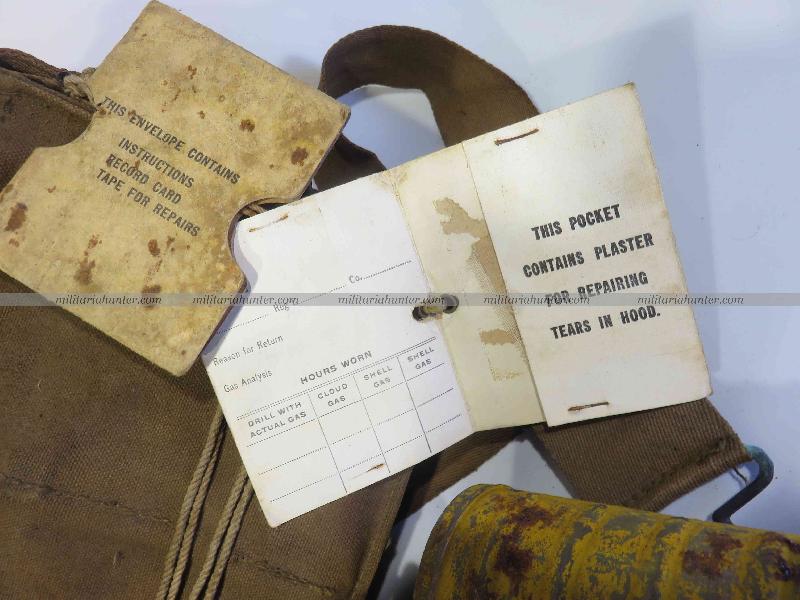 THIS ENVELOPE CONTAINS
INSTRUCTIONS
RECORD CARD
TAPE FOR REPAIRS
Co.
Reg
Reason for Return
Gas Analysis
HOURS WORN
DRILL WITH ACTUAL GAS
CLOUD GAS
SHELL GAS
SHELL GAS
THIS POCKET
CONTAINS PLASTER
FOR REPAIRING
TEARS IN HOOD.
militariahunter.com militariahunter.com militariahunter.com militariahunter.com militariahunter.com